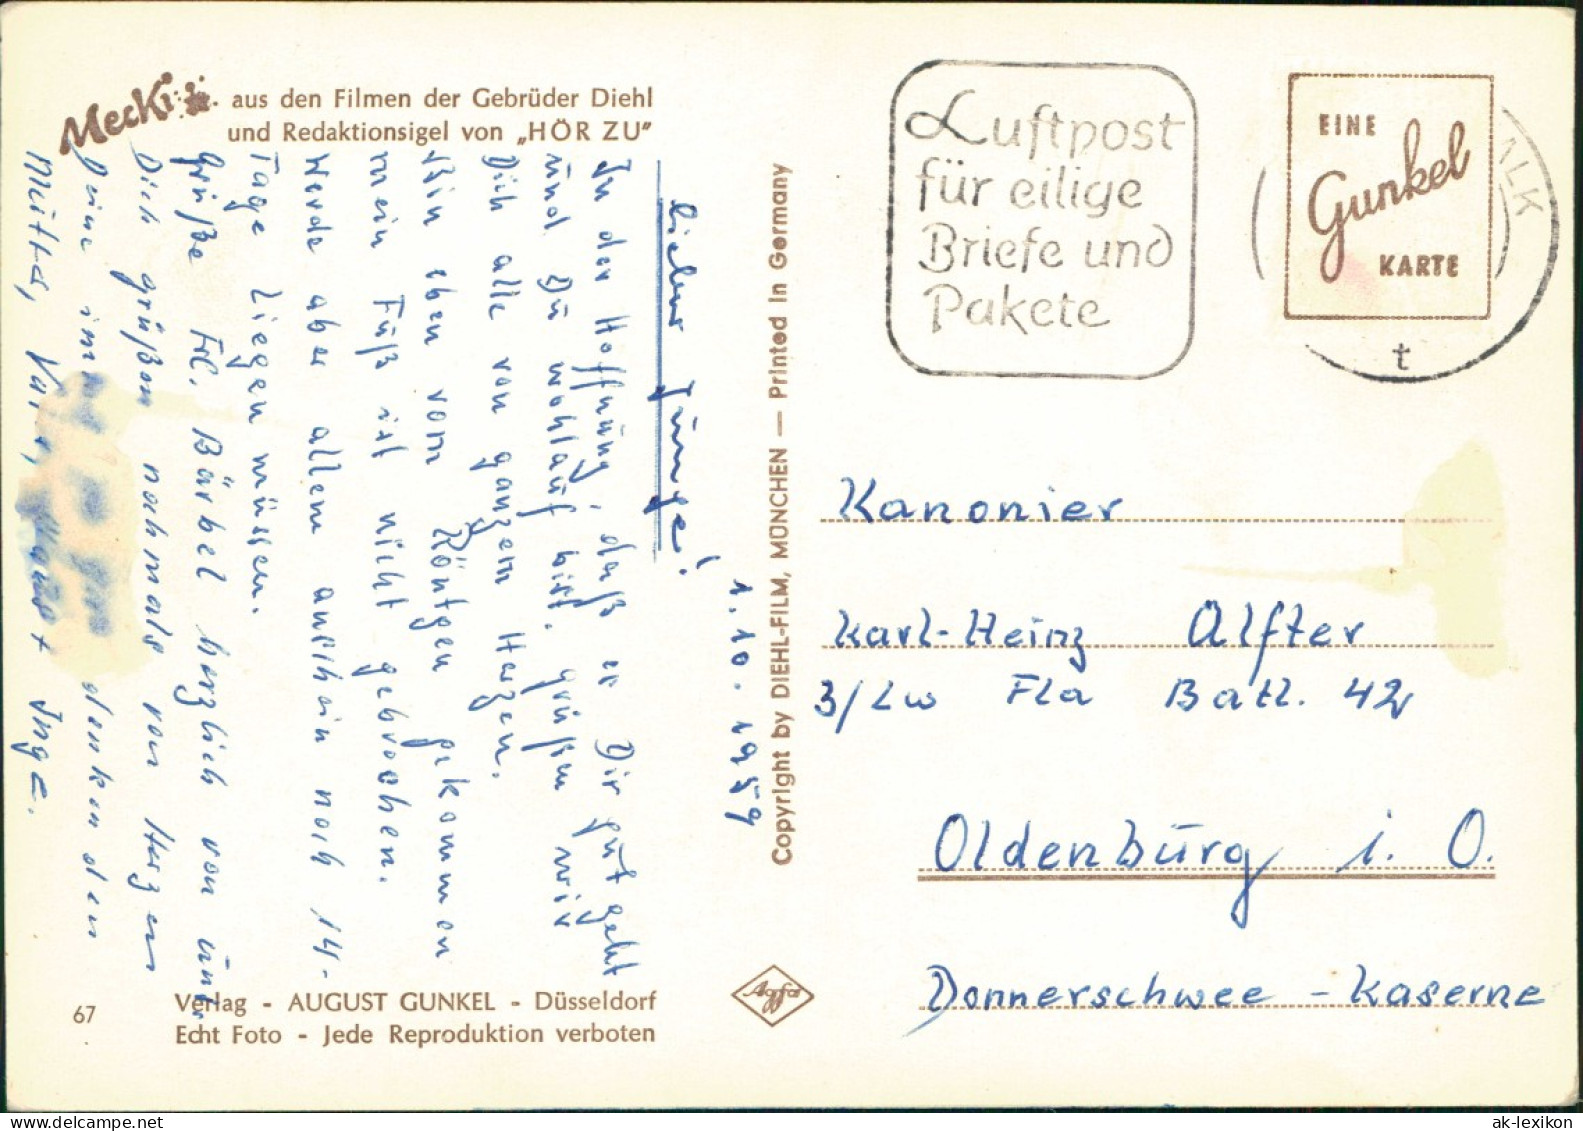 Mecki
aus den Filmen der Gebrüder Diehl
und Redaktionsigel von „HÖR ZU"
1. 10. 1959
Lieber Junge!
In der Hoffnung, daß es Dir gut geht
und Du wohlauf bist, grüßen wir
Dich alle von ganzem Herzen.
Bin eben vom Röntgen gekommen
mein Fuß ist nicht gebrochen.
Werde aber allem anschein noch 14-
Tage Liegen müssen.
Grüße Frl. Bärbel herzlich von uns
Dich grüßen nochmals von Herzen
Deine immer an denken den
Mutter, Vater, Inge.
67
Verlag - AUGUST GUNKEL - Düsseldorf
Echt Foto - Jede Reproduktion verboten
Copyright by DIEHL-FILM, MÜNCHEN — Printed in Germany
Agfa
Luftpost
für eilige
Briefe und
Pakete
EINE
Gunkel
KARTE
ALK
t
Kanonier
Karl-Heinz Alfter
3/Lw Fla Batl. 42
Oldenburg i. O.
Donnerschwee - Kaserne
ak-lexikon